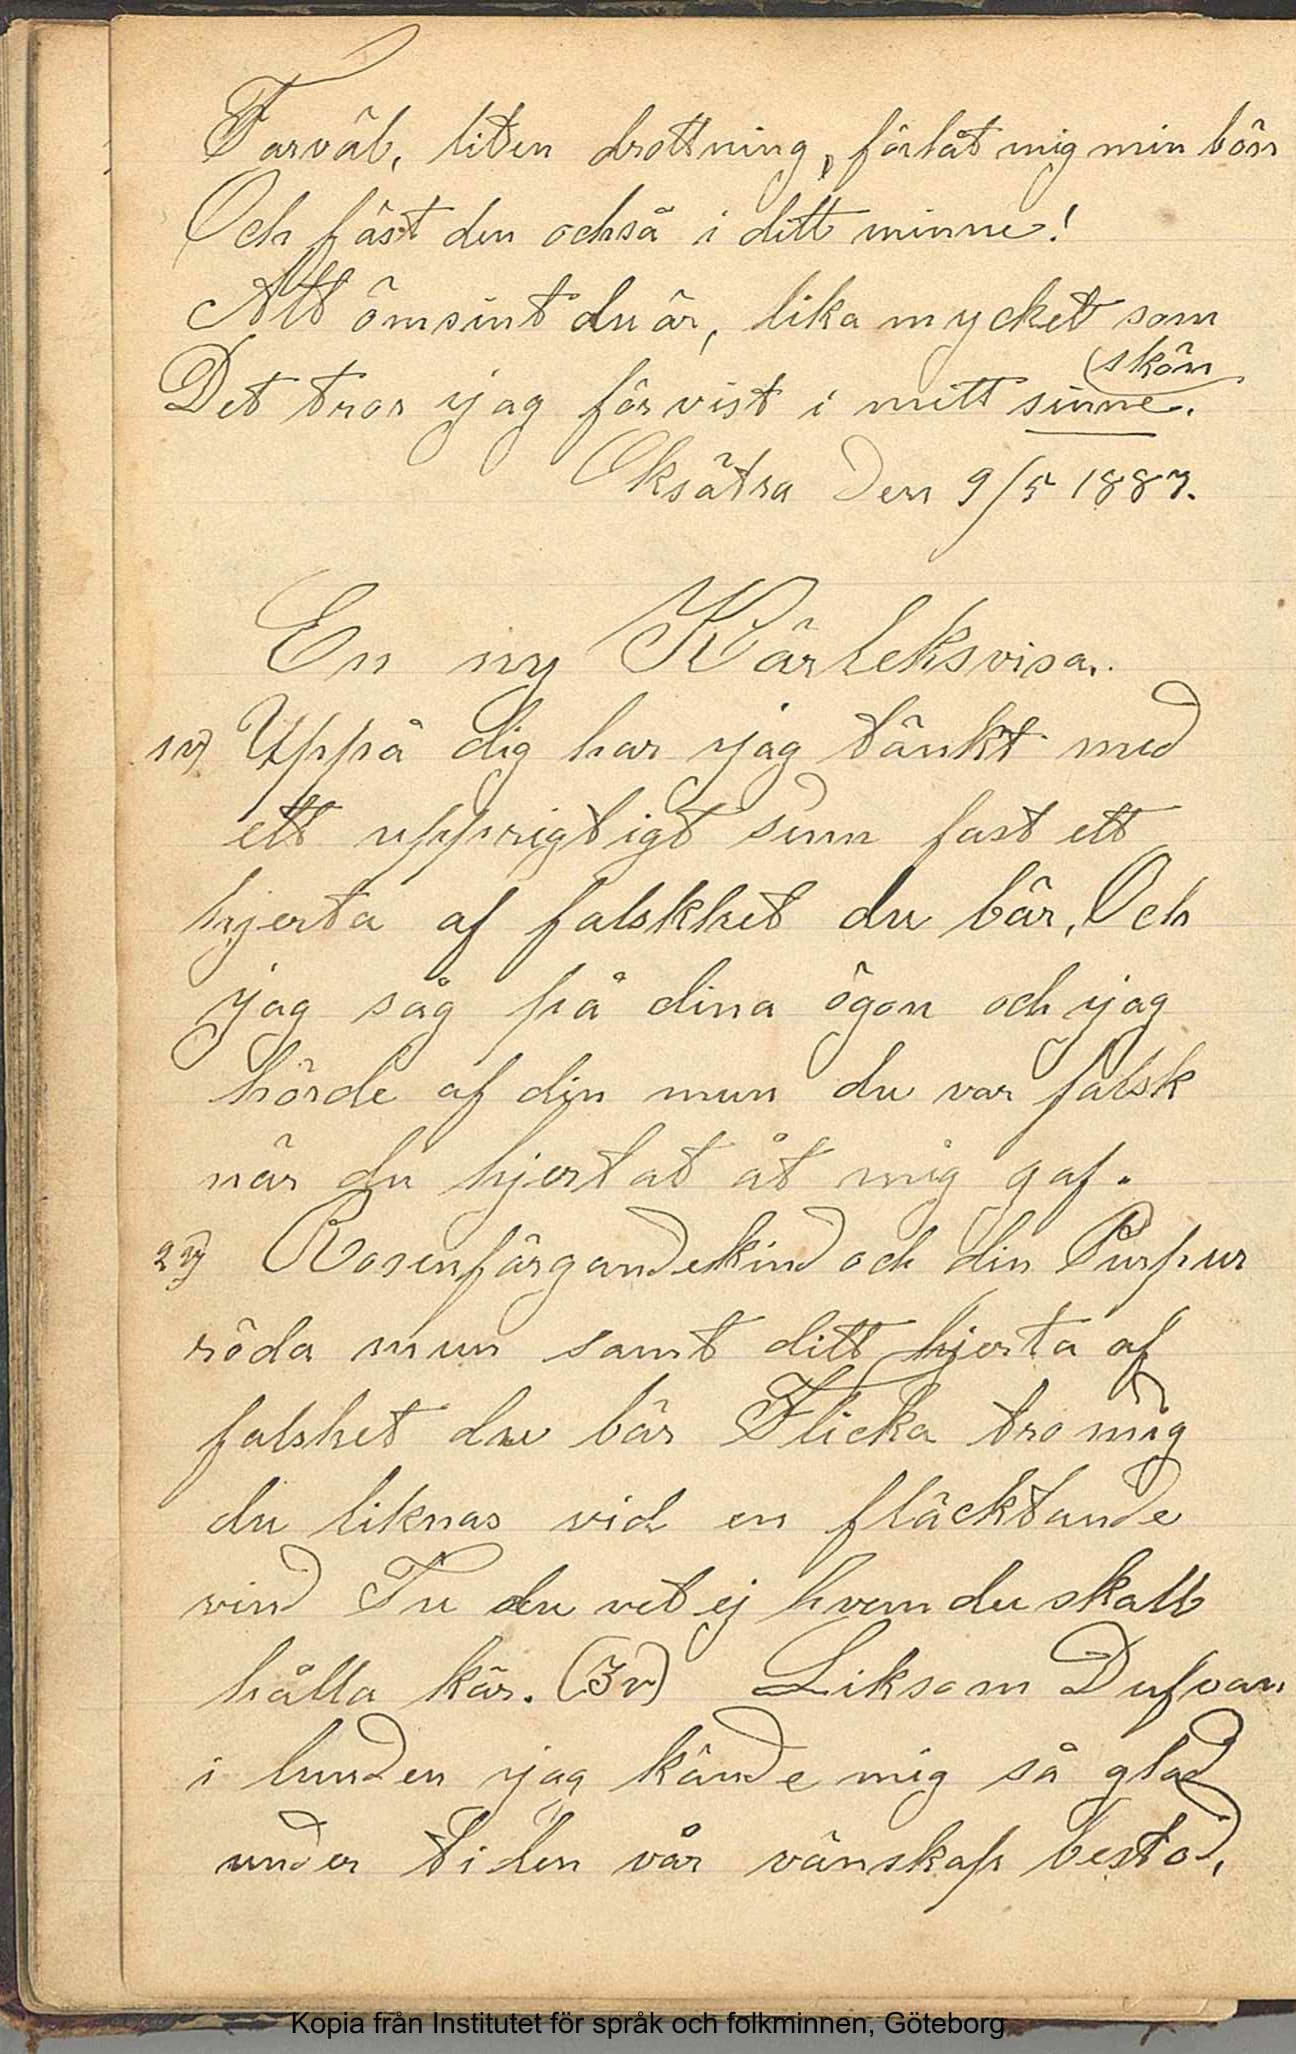 Farväl, liten drottning, förlåt mig min bön
Och fäst den också i ditt minne!
Att ömsint du är, lika mycket som
(skön
Det tror jag förvist i mitt sinne.
Oksätra Den 9/5 1887.
En ny Kärleksvisa.
1v) Uppå dig har jag tänkt med
ett upprigtigt sinn fast ett
hjerta af falskhet du bär, Och
jag såg på dina ögon och jag
hörde af din mun du var falsk
när du hjertat åt mig gaf.
2v) Rosenfärgandekind och din Purpur
röda mun samt ditt hjerta af
falshet du bär Flicka tro mig
du liknas vid en fläcktande
vind Tu du vet ej hvem du skall
hålla kär. (3v) Liksom Dufvan
i lunden jag kände mig så glad
under tiden vår vänskap bestod,
Kopia från Institutet för språk och folkminnen, Göteborg